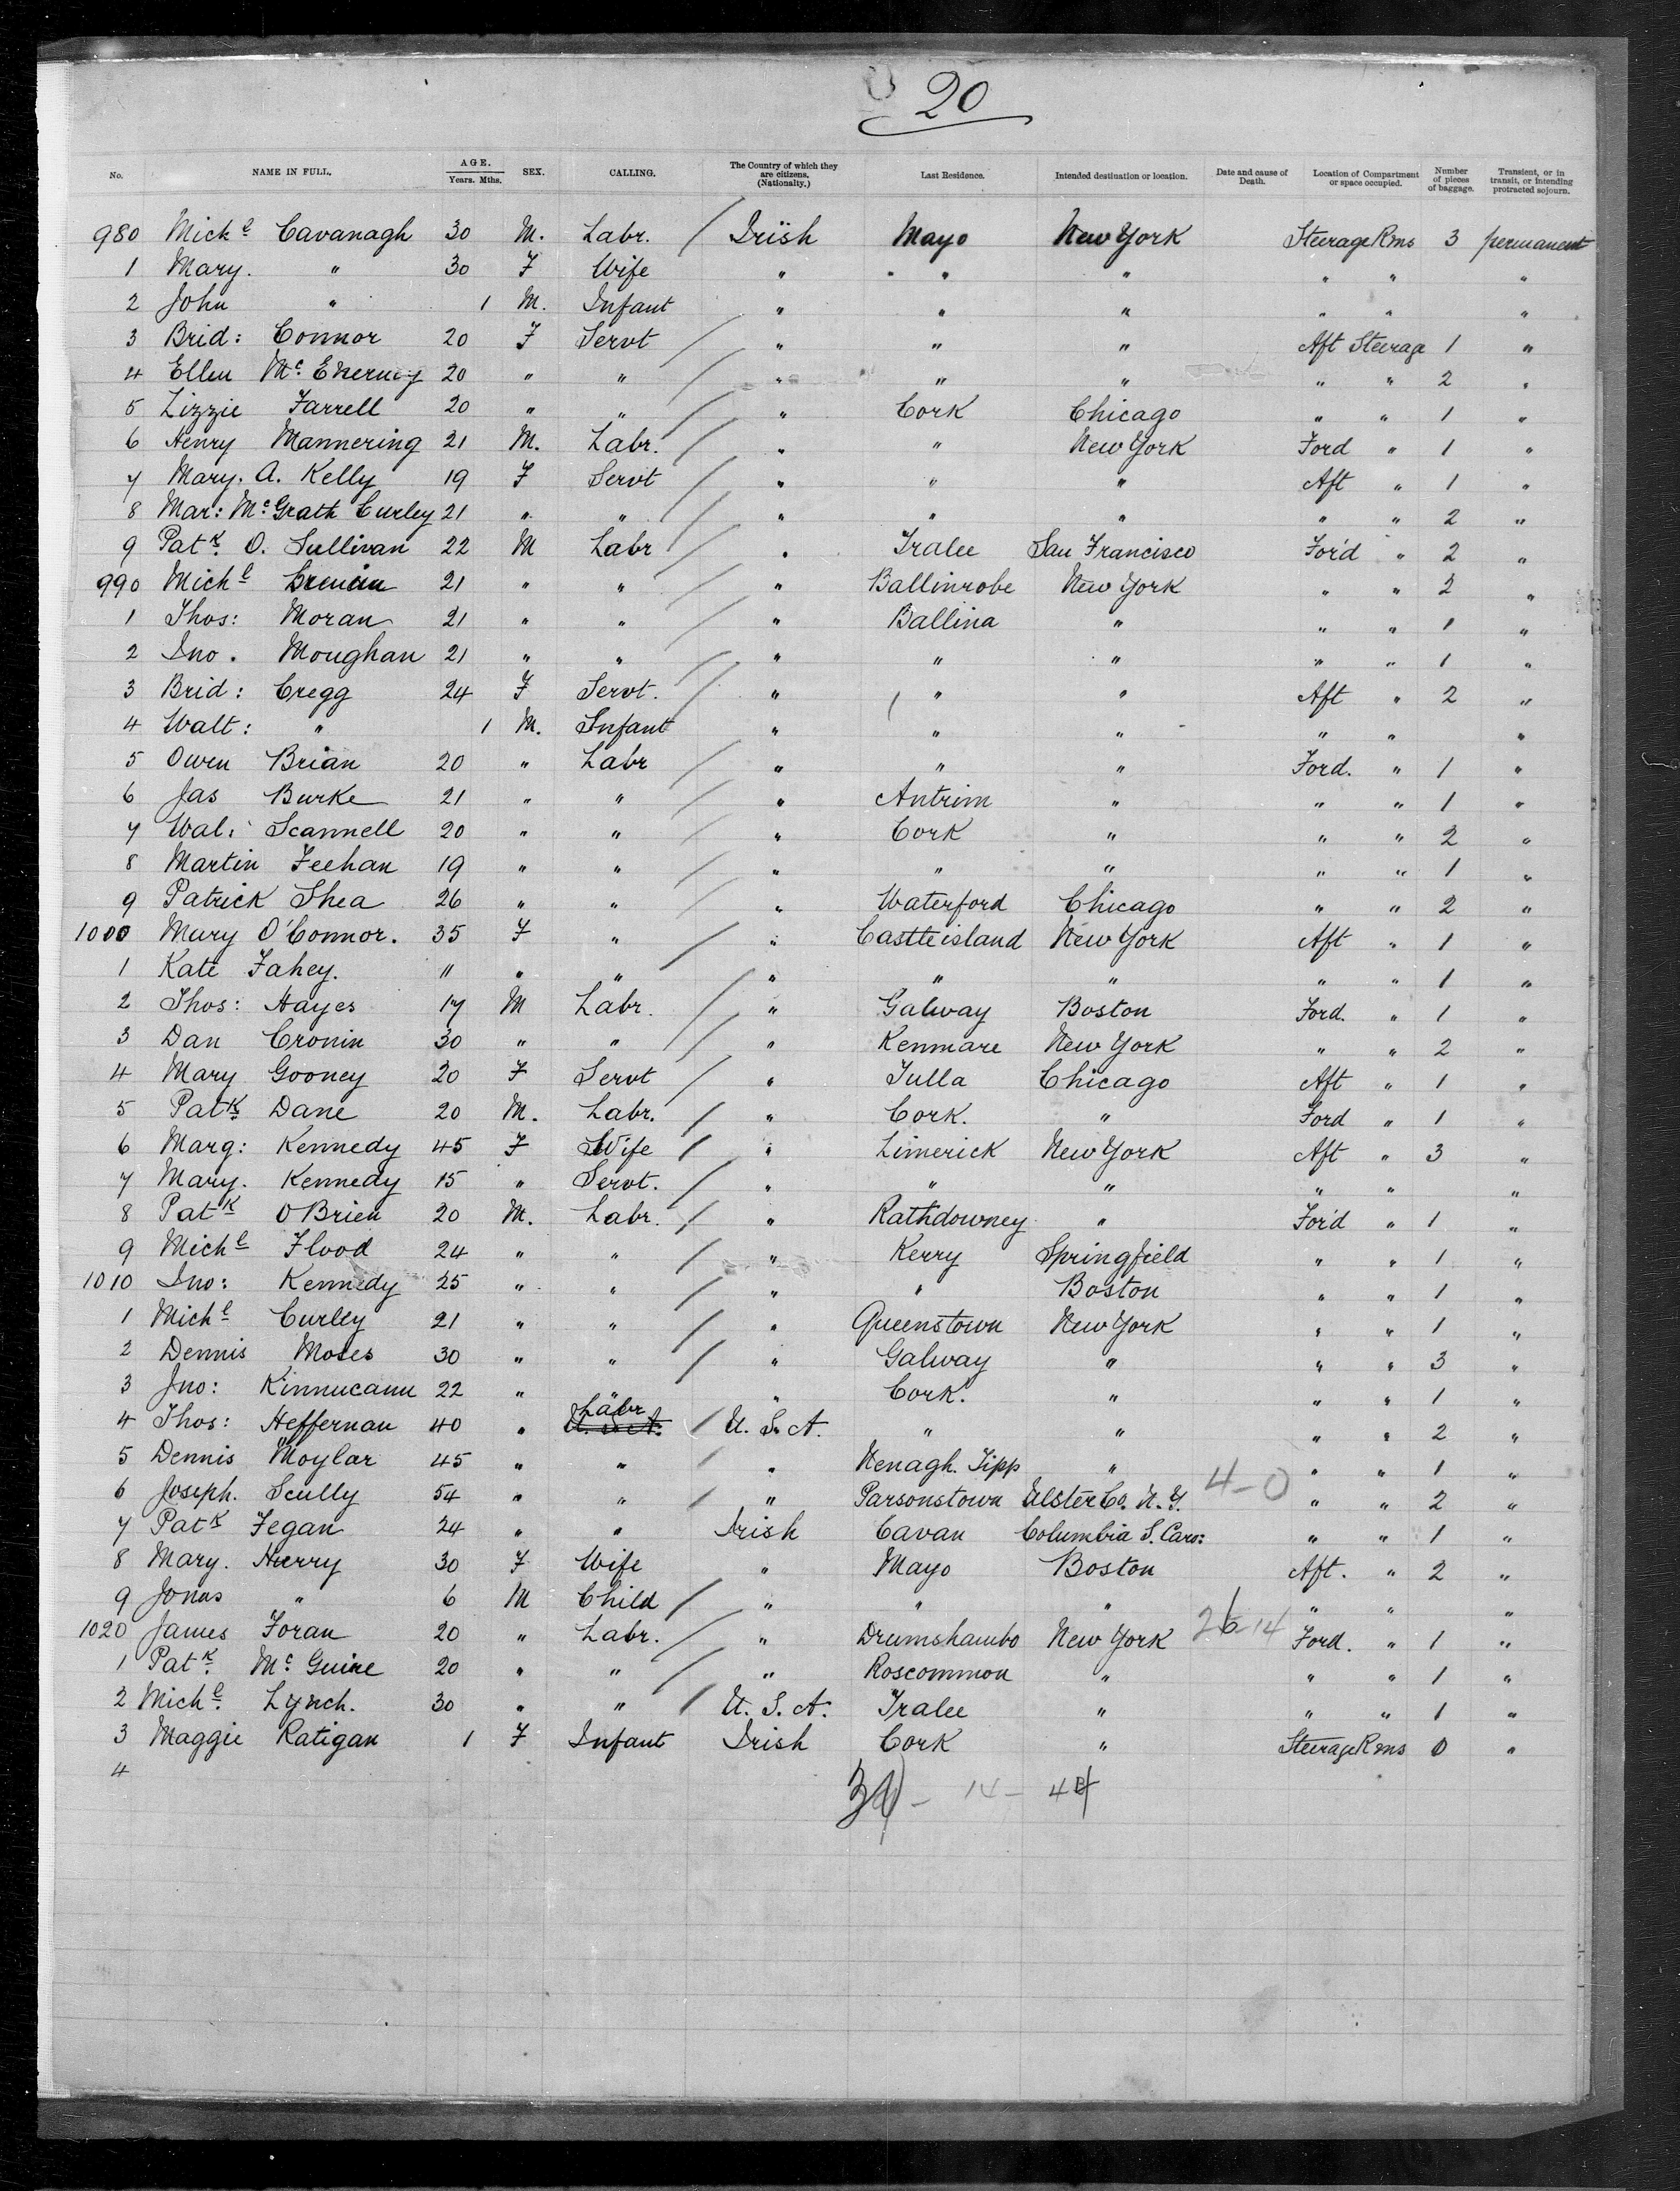 20
No. NAME IN FULL. AGE. Years. Mths. SEX. CALLING. The Country of which they are citizens. (Nationality.) Last Residence. Intended destination or location. Date and cause of Death. Location of Compartment or space occupied. Number of pieces of baggage. Transient, or in transit, or intending protracted sojourn.
980 Michl Cavanagh 30 M. Labr. / Irish Mayo New York Steerage Rms 3 permanent
1 Mary. " 30 F Wife " " " " " "
2 John " 1 M. Infant " " " " " "
3 Brid: Connor 20 F Servt / " " " Aft Steerage 1 "
4 Ellen Mc Enerney 20 " " / " " " " " 2 "
5 Lizzie Farrell 20 " " / " Cork Chicago " " 1 "
6 Henry Mannering 21 M. Labr. / " " New York Ford " 1 "
7 Mary. A. Kelly 19 F Servt / " " " Aft " 1 "
8 Mar: Mc Grath Curley 21 " " / " " " " " 2 "
9 Patk. O. Sullivan 22 M Labr / " Tralee San Francisco For'd " 2 "
990 Michl 21 " " / " Ballinrobe New York " " 2 "
1 Thos: Moran 21 " " / " Ballina " " " 1 "
2 Jno. Moughan 21 " " / " " " " " 1 "
3 Brid: Cregg 24 F Servt. / " " " Aft " 2 "
4 Walt: " 1 M. Infant " " " " " "
5 Owen Brian 20 " Labr / " " " Ford. " 1 "
6 Jas Burke 21 " " / " Antrim " " " 1 "
7 Wal: Scannell 20 " " / " Cork " " " 2 "
8 Martin Feehan 19 " " / " " " " " 1 "
9 Patrick Shea 26 " " / " Waterford Chicago " " 2 "
1000 Mary O'Connor. 35 F " / " Castleisland New York Aft " 1 "
1 Kate Fahey. " " " / " " " " " 1 "
2 Thos: Hayes 17 M Labr. / " Galway Boston Ford. " 1 "
3 Dan Cronin 30 " " / " Kenmare New York " " 2 "
4 Mary Gooney 20 F Servt / " Tulla Chicago Aft " 1 "
5 Patk Dane 20 M. Labr. / " Cork. " Ford " 1 "
6 Marg: Kennedy 45 F Wife / " Limerick New York Aft " 3 "
7 Mary. Kennedy 15 " Servt. / " " " " " "
8 Patk O Brien 20 M. Labr. / " Rathdowney " For'd " 1 "
9 Michl Flood 24 " " / " Kerry Springfield " " 1 "
1010 Jno: Kennedy 25 " " / " " Boston " " 1 "
1 Michl Curley 21 " " / " Queenstown New York " " 1 "
2 Dennis Moses 30 " " / " Galway " " " 3 "
3 Jno: Kinnucann 22 " " Cork. " " " 1 "
4 Thos: Heffernan 40 " Labr U.S.A. / U.S.A. " " " " 2 "
5 Dennis Moylar 45 " " / " Nenagh. Tipp " " " 1 "
6 Joseph. Scully 54 " " / " Parsonstown Ulster Co. N.Y. 4-0 " " 2 "
7 Patk Fegan 24 " " Irish Cavan Columbia S. Caro: " " 1 "
8 Mary. Hurry 30 F Wife " Mayo Boston Aft. " 2 "
9 Jonas " 6 M Child / " " " " " "
1020 James Foran 20 " Labr. / " Drumshambo New York 26-14 Ford. " 1 "
1 Patk. Mc Guire 20 " " / " Roscommon " " " 1 "
2 Michl. Lynch. 30 " " / U.S.A. Tralee " " " 1 "
3 Maggie Ratigan 1 F Infant Irish Cork " Steerage Rms 0 "
4
14 - 44